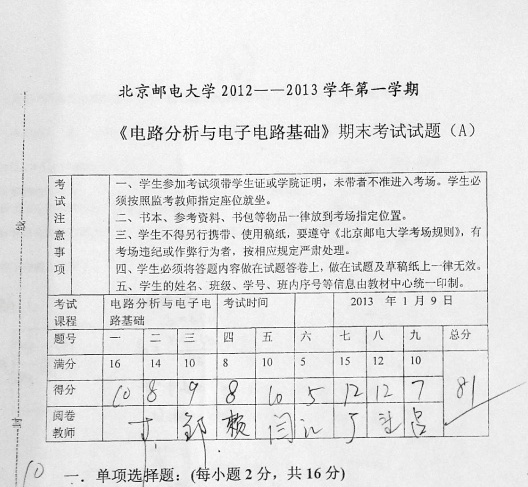 北京邮电大学 2012——2013 学年第一学期
《电路分析与电子电路基础》期末考试试题（A）
考试注意事项
一、学生参加考试须带学生证或学院证明，未带者不准进入考场。学生必
须按照监考教师指定座位就坐。
二、书本、参考资料、书包等物品一律放到考场指定位置。
三、学生不得另行携带、使用稿纸，要遵守《北京邮电大学考场规则》，有
考场违纪或作弊行为者，按相应规定严肃处理。
四、学生必须将答题内容做在试题答卷上，做在试题及草稿纸上一律无效。
五、学生的姓名、班级、学号、班内序号等信息由教材中心统一印制。
考试课程 电路分析与电子电路基础 考试时间 2013 年 1 月 9 日
题号 一 二 三 四 五 六 七 八 九 总分
满分 16 14 10 8 10 5 15 12 10
得分 10 8 9 8 10 5 12 12 7 81
阅卷教师
线
封
10 一．单项选择题：(每小题 2 分，共 16 分)